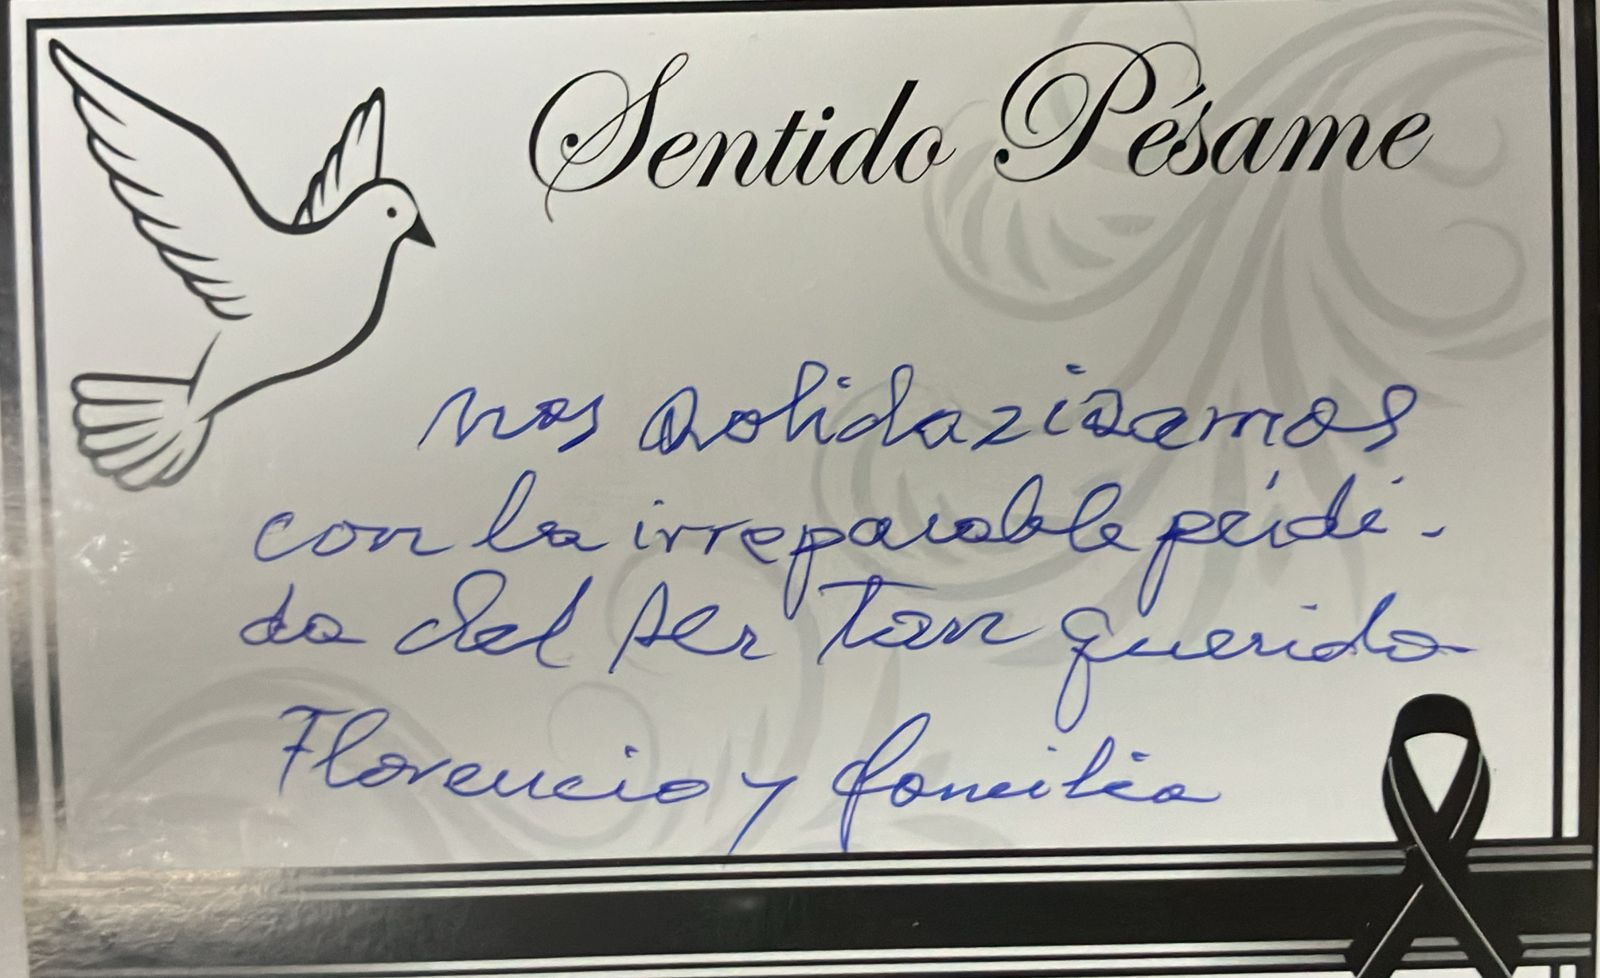 Sentido Pésame
nos solidarizamos
con la irreparable pérdi-
da del ser tan querido
Florencio y familia